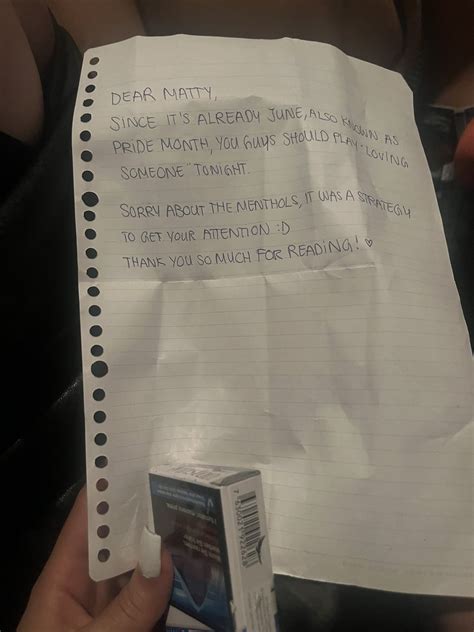 DEAR MATTY,
SINCE IT'S ALREADY JUNE, ALSO KNOWN AS
PRIDE MONTH, YOU GUYS SHOULD PLAY "LOVING
SOMEONE" TONIGHT.
SORRY ABOUT THE MENTHOLS, IT WAS A STRATEGIY
TO GET YOUR ATTENTION :D
THANK YOU SO MUCH FOR READING! ♥